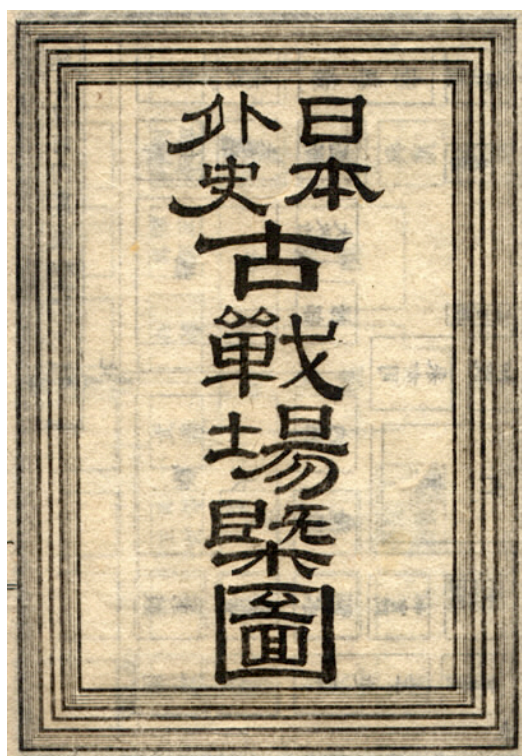 日本
外史
古戰場槩圖